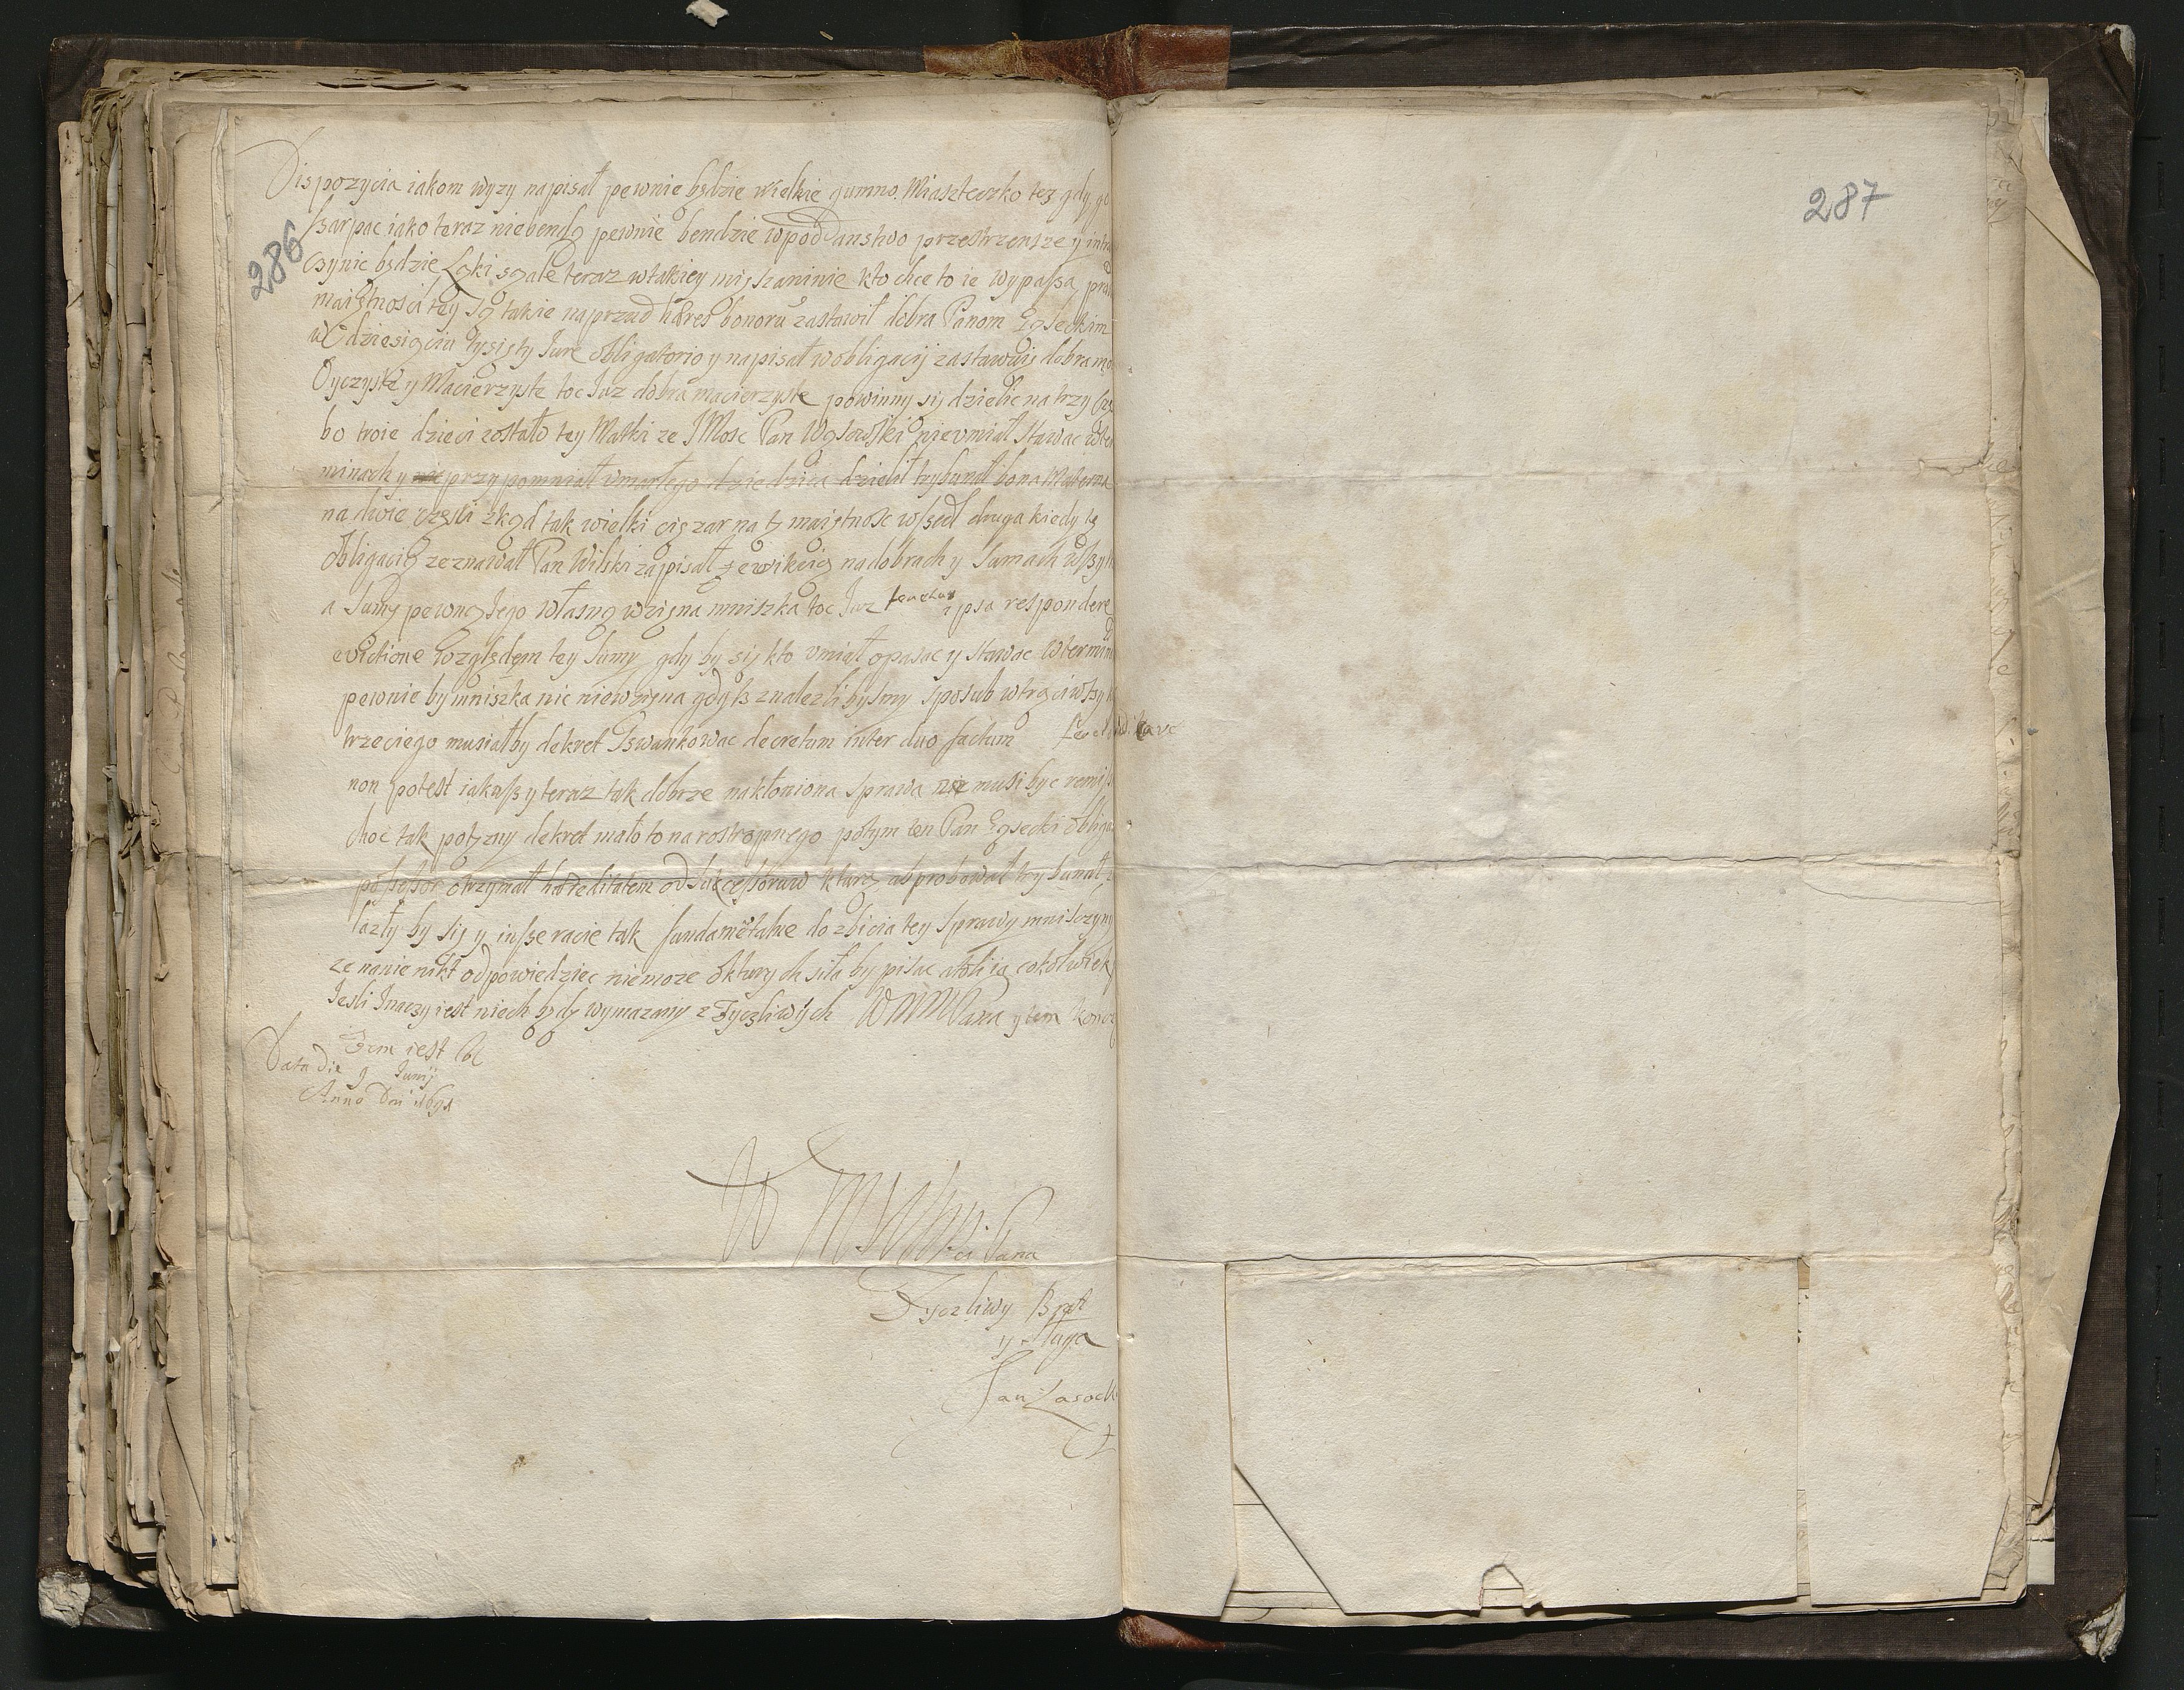 Dispozycia iakom wyzy napisał pewnie będzie wielkie gumno. Miasteczko tez gdy go
szarpac iako teraz niebendą pewnie bendzie wpoddanstwo przestrzensze y intra
czynic będzie Łąki są ale teraz wtakiey miszaninie kto chce to ie wypasa, pra
maiętnosci tey są takie naprzud hæres bonorū zastawił dobra Panom
w dziesiąciu tysięcy Jure obligatorio y napisał wobligacij zastawuię dobra mo
Oyczyste y Macierzyste toc Juz dobra macierzyste powinny się dzielic na trzy czę
bo troie dzieci zostało tey Matki ze JMosc Pan Wąsowski nievmiał stawac wter
minach y przypomniał vmarłego dziedzica dzielił trybunał bona Materna
na dwie częsci zkąd tak wielki ciązar na tę maiętnosc wszedł druga kiedy tę
obligacią zeznawał Pan Wilski zapisał ewikcią na dobrach y Sumach wszyt
a Sumy pewną Jego własną wzięna mniszka toc Juz tenetur ipsa respondere
evictione względem tey Sumy gdy by się kto vmiał opasac y stawac wtermin
pewnie by mniszka nic niewzięna gdysz znalezlibysmy sposub wtrąciwszy
trzeciego musiałby dekret szwankowac decretum inter duo factum
non potest iakasz y teraz tak dobrze nakłoniona sprawa musi byc remis
choc tak potęzny dekret mało to na rostropnego potym ten Pan obliga
possessor otrzymał hæreditatem od Sukcessoruw kturą abprobował trybunał
lazły by się y insze racie tak fundamētalne do zbicia tey sprawy mnisczyny
ze nanie nikt odpowiedziec niemoze okturych siła by pisac cokolwiek
Jesli Inaczy iest niech będę wymazany z Zyczliwych WMMPana y tem koncz
Zem iest
Data Die 9 Junij
Anno Dni 1691
286
287
Pana
Zyczliwy Brat
y Sługa
Jan Lasock